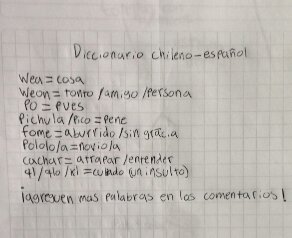 Diccionario chileno-español
wea = cosa
weon = tonto /amigo /persona
PO = pues
Pichula /Pico = pene
fome = aburrido /sin gracia
Pololo/a = novio/a
cachar = atrapar /entender
ql/qlo /kl = culiado (un insulto)
¡agreguen mas palabras en los comentarios!